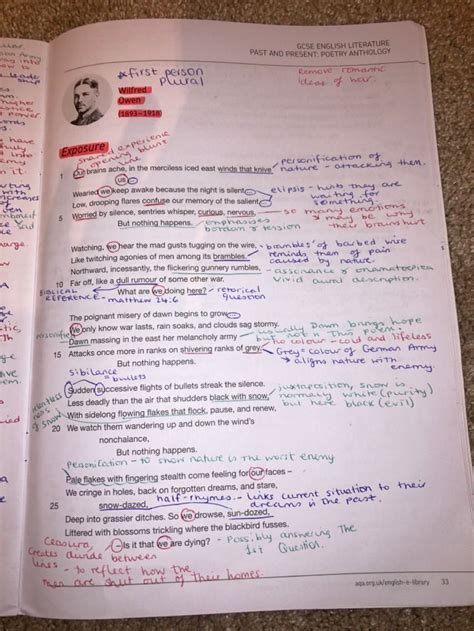 GCSE ENGLISH LITERATURE
PAST AND PRESENT: POETRY ANTHOLOGY
*first person
plural
Remove romantic
ideas of war.
Wilfred
Owen
(1893–1918)
Exposure
shared experience
opening blunt
personification of
nature - attacking them.
1 Our brains ache, in the merciless iced east winds that knive
us ...
Wearied we keep awake because the night is silent ...
Low, drooping flares confuse our memory of the salient ...
5 Worried by silence, sentries whisper, curious, nervous,
But nothing happens.
elipsis - hints they are
waiting for
something.
so many emotions
may be why
their brains hurt
emphasises
boredom & tension
Watching, we hear the mad gusts tugging on the wire,
Like twitching agonies of men among its brambles.
Northward, incessantly, the flickering gunnery rumbles,
10 Far off, like a dull rumour of some other war.
What are we doing here?
'brambles' of barbed wire
reminds them of pain
caused by nature.
assonance & onomatopoeia
vivid aural description.
rhetorical
question
BIBLICAL
REFERENCE - matthew 24:6
The poignant misery of dawn begins to grow ...
We only know war lasts, rain soaks, and clouds sag stormy.
Dawn massing in the east her melancholy army
15 Attacks once more in ranks on shivering ranks of grey,
But nothing happens.
usually Dawn brings hope
but not in this poem.
no colour - cold and lifeless
Grey = colour of German Army
aligns nature with
enemy.
sibilance
= bullets
Sudden successive flights of bullets streak the silence.
Less deadly than the air that shudders black with snow,
With sidelong flowing flakes that flock, pause, and renew,
20 We watch them wandering up and down the wind's
nonchalance,
But nothing happens.
juxtaposition, snow is
normally white (purity)
but here black (evil)
personification - to show nature is the worst enemy.
Pale flakes with fingering stealth come feeling for our faces –
We cringe in holes, back on forgotten dreams, and stare,
25 snow-dazed,
Deep into grassier ditches. So we drowse, sun-dozed,
Littered with blossoms trickling where the blackbird fusses.
– Is it that we are dying?
half-rhymes - links current situation to their
dreams in the past.
Possibly answering the
1st Question.
Ceasura,
creates divide between
lines - to reflect how the
men are shut out of their homes.
aqa.org.uk/english-e-library 33